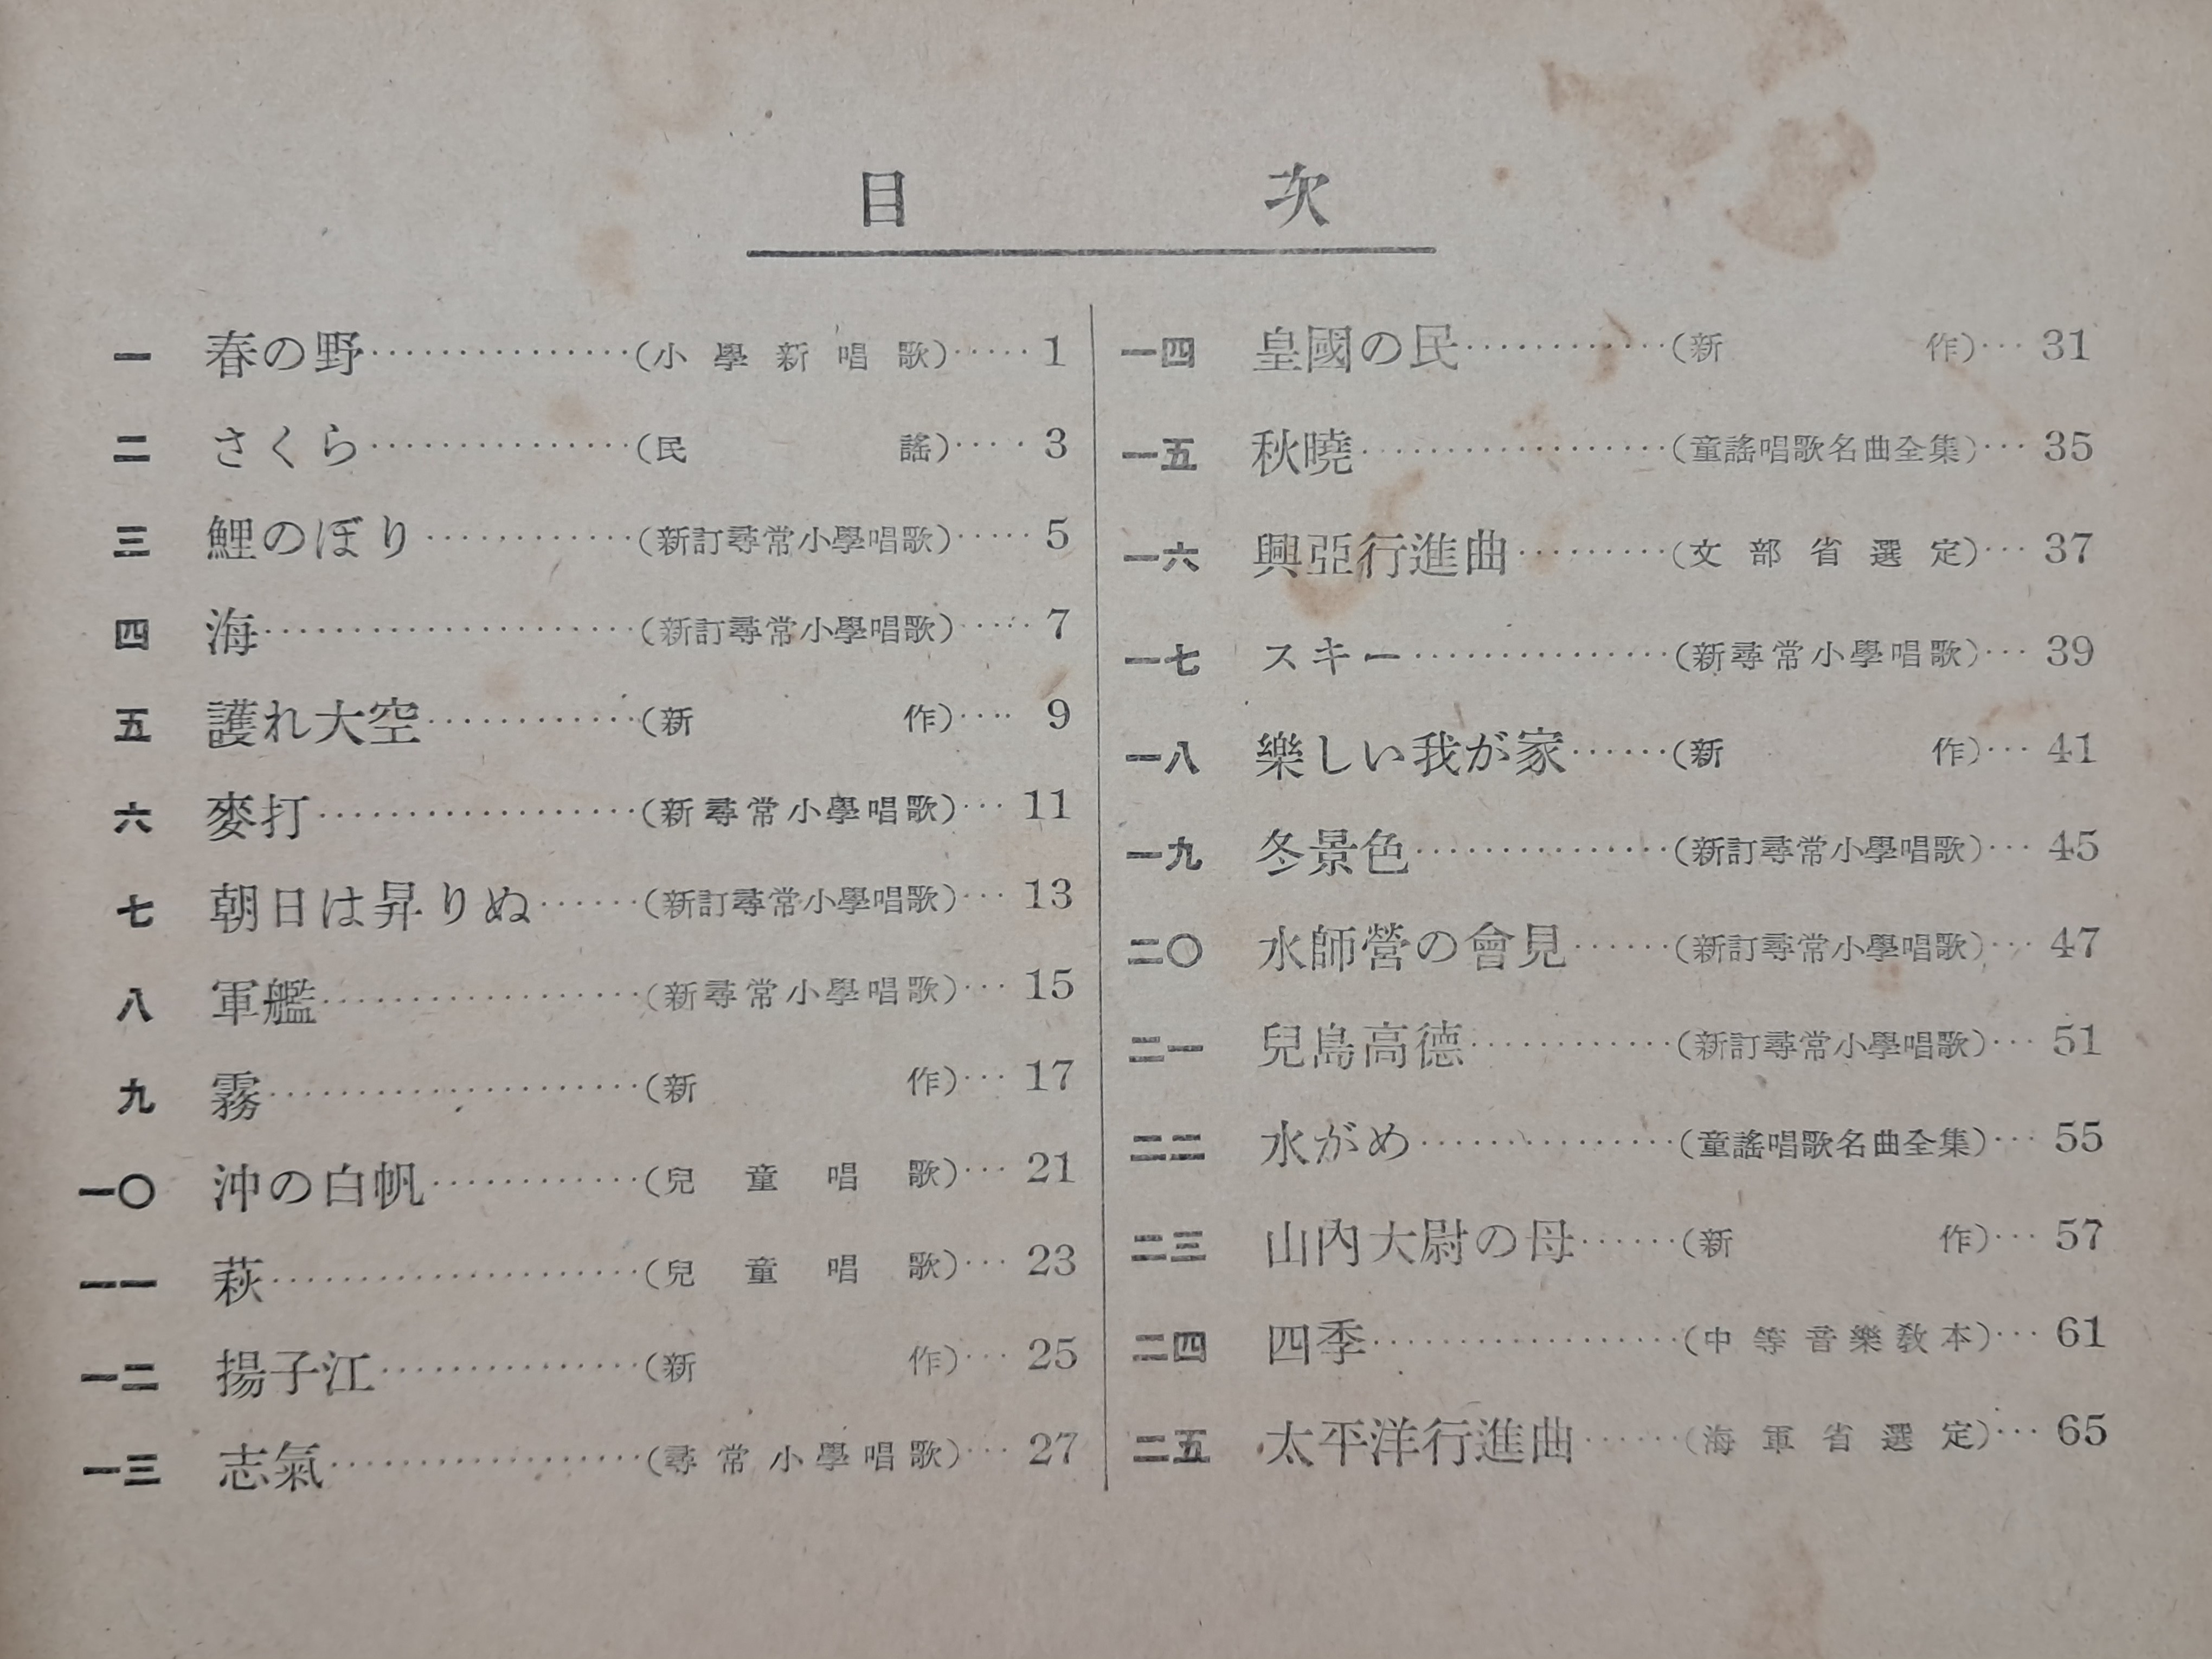 目次
一 春の野……………(小學新唱歌)……1
二 さくら……………(民謠)……3
三 鯉のぼり…………(新訂尋常小學唱歌)……5
四 海…………………(新訂尋常小學唱歌)……7
五 護れ大空…………(新作)……9
六 麥打………………(新尋常小學唱歌)…11
七 朝日は昇りぬ……(新訂尋常小學唱歌)…13
八 軍艦………………(新尋常小學唱歌)…15
九 霧…………………(新作)…17
一〇 沖の白帆…………(兒童唱歌)…21
一一 萩…………………(兒童唱歌)…23
一二 揚子江……………(新作)…25
一三 志氣………………(尋常小學唱歌)…27
一四 皇國の民…………(新作)…31
一五 秋曉………………(童謠唱歌名曲全集)…35
一六 興亞行進曲………(文部省選定)…37
一七 スキー……………(新尋常小學唱歌)…39
一八 樂しい我が家……(新作)…41
一九 冬景色……………(新訂尋常小學唱歌)…45
二〇 水師營の會見……(新訂尋常小學唱歌)…47
二一 兒島高德…………(新訂尋常小學唱歌)…51
二二 水がめ……………(童謠唱歌名曲全集)…55
二三 山內大尉の母……(新作)…57
二四 四季………………(中等音樂敎本)…61
二五 太平洋行進曲……(海軍省選定)…65